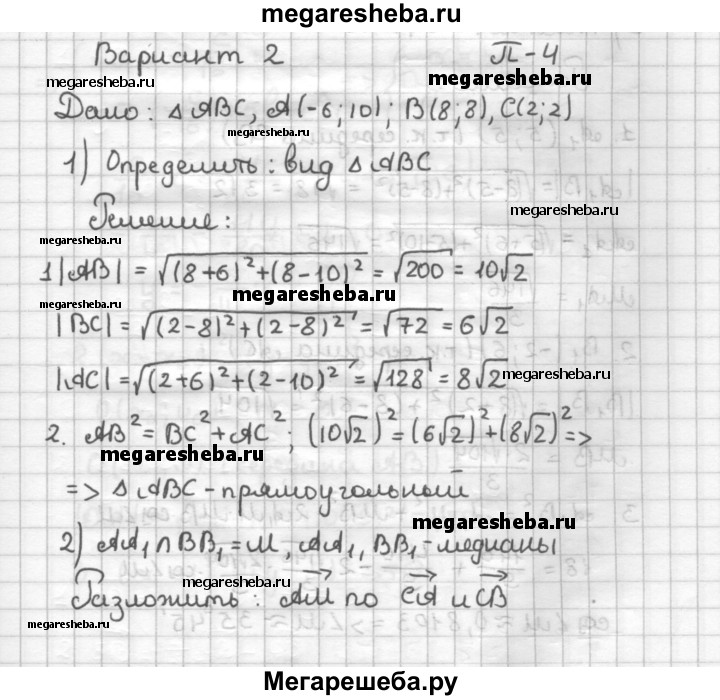 megaresheba.ru
Вариант 2 П-4
megaresheba.ru
megaresheba.ru
Дано: △ABC, A(-6;10); B(8;8), C(2;2)
megaresheba.ru
1) Определить: вид △ABC
Решение:
megaresheba.ru
1|AB| = √((8+6)²+(8-10)²) = √200 = 10√2
megaresheba.ru
|BC| = √((2-8)²+(2-8)²) = √72 = 6√2
|AC| = √((2+6)²+(2-10)²) = √128 = 8√2
megaresheba.ru
2. AB² = BC² + AC²; (10√2)² = (6√2)² + (8√2)² =>
megaresheba.ru
=> △ABC - прямоугольный
megaresheba.ru
2) AA₁ ∩ BB₁ = M, AA₁, BB₁ - медианы
megaresheba.ru
Разложить: AM по CA и CB
megaresheba.ru
Мегарешеба.ру